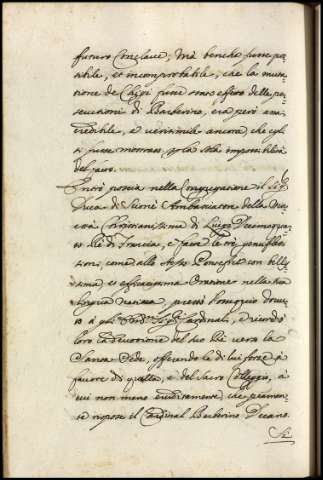 futuro Conclave; Mà benche fusse pos
sibile, et incomprobabile, che la muta
tione de Chigi fusse stato effetto delle per
secutioni di Barberino, era però anco
credibile, e verisimile ancora che egli
si fusse mosso, p la sola impossibilità
del fare.
Entrò poscia nella Congregatione il Sigr
Duca di Ambasciatore della Ma
està Christianissima di Luigi Decimoquar
to Rè di Francia, e fatte le trè genufles
sioni, come alle Pontefice con bellis
sima et efficacissima Oratione nella sua
lingua natiua, prestò l'omaggio douu
to à gl' Emmi Sigri Cardinali, e ricordò
loro la deuotione del suo Rè verso la
Santa Sede, offerendo le di lui forze à
fauore di quella, e del Sacro Colleggio, à
cui non meno eruditamente, che piamen
te rispose il Cardinal Barberino Decano.
Si